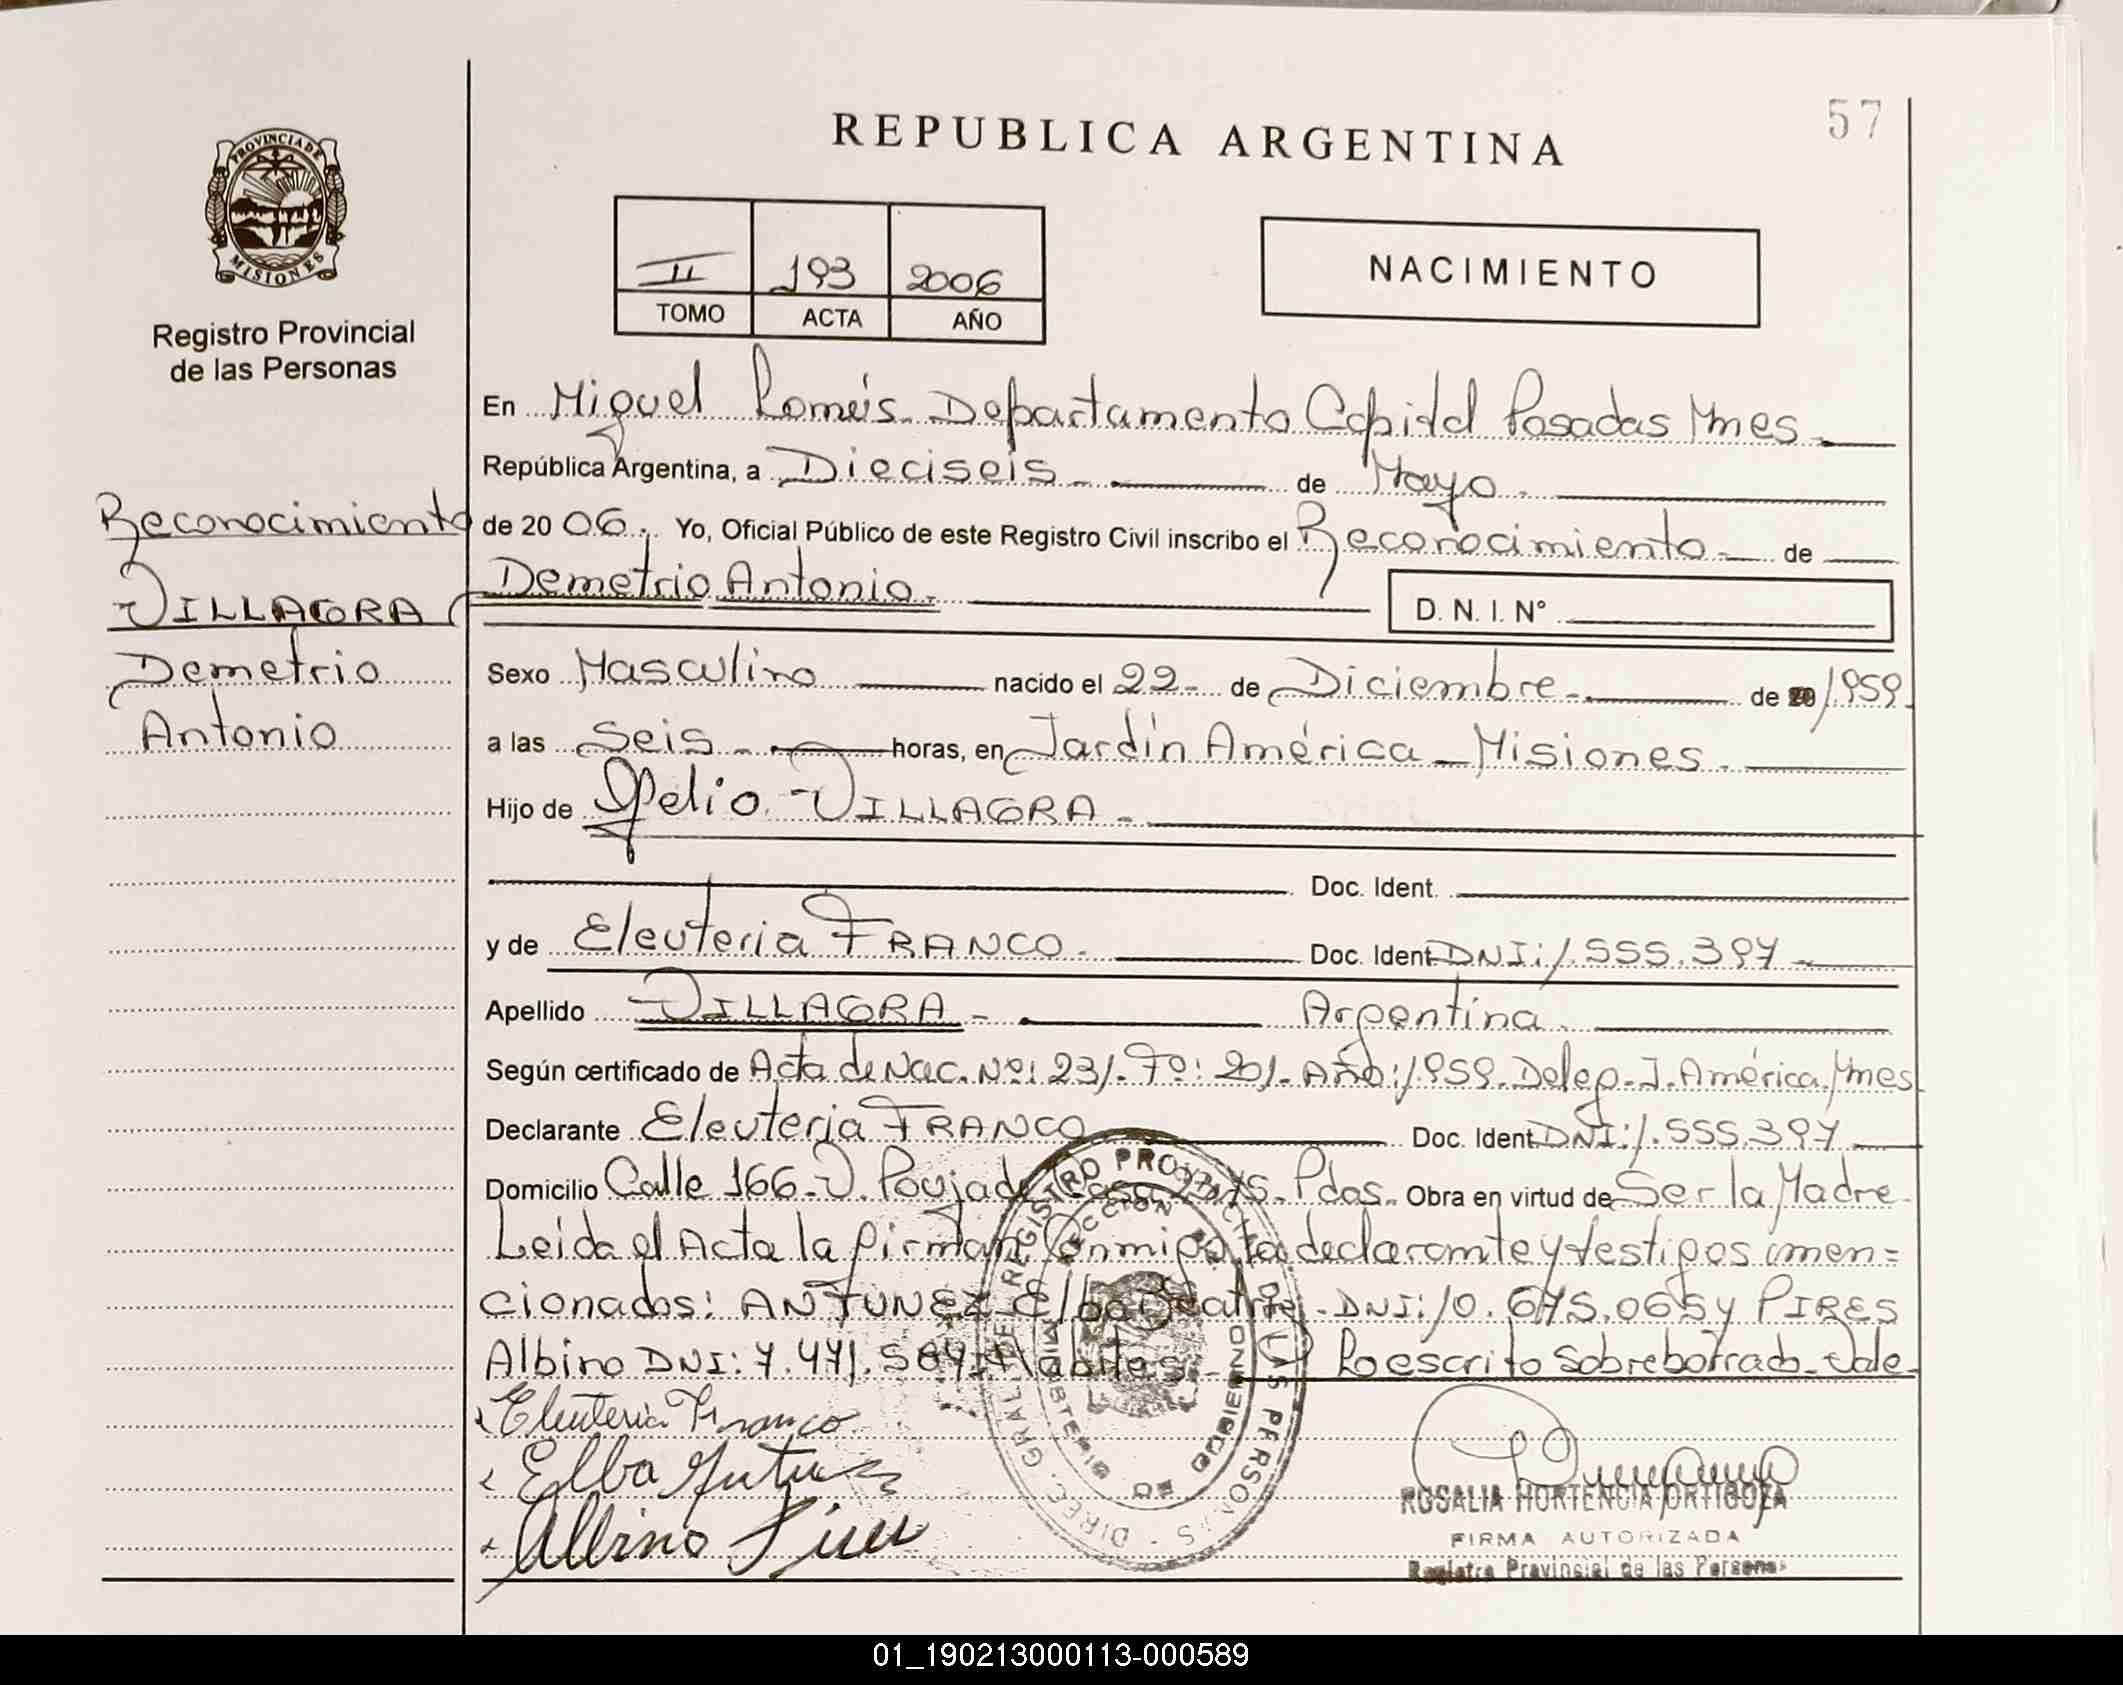 57
REPUBLICA ARGENTINA
PROVINCIA DE
MISIONES
Registro Provincial
de las Personas
II 193 2006
TOMO ACTA AÑO
NACIMIENTO
En Miguel Lomeis. Departamento Capital Posadas Mnes
República Argentina, a Dieciseis de Mayo
de 2006. Yo, Oficial Público de este Registro Civil inscribo el Reconocimiento de
Demetrio Antonio.
D. N. I. N°
Reconocimiento
VILLAGRA
Demetrio
Antonio
Sexo Masculino nacido el 22 de Diciembre de 1959
a las Seis horas, en Jardín América - Misiones.
Hijo de Ofelio VILLAGRA
Doc. Ident.
y de Eleuteria FRANCO. Doc. Ident DNI: 1.555.397
Apellido VILLAGRA - Argentina
Según certificado de Acta de Nac. Nº: 231. Tº: 201. Año: 1959. Deleg. J. América. Mnes
Declarante Eleuteria FRANCO Doc. Ident DNI: 1.555.397
Domicilio Calle 166. V. Poujade Pdas. Obra en virtud de Ser la Madre
Leida el Acta la firman Conmigo la declarante y testigos men=
cionados: ANTUNEZ Elba Beatriz - DNI: 10.675.065 y PIRES
Albino DNI: 7.471.5 Lo escrito sobreborrado. Vale
Eleuteria Franco
Elba Antunez
Albino Pires
DIREC. GRAL. DE REGISTRO PROVINCIAL DE LAS PERSONAS
MINISTERIO DE GOBIERNO
ROSALIA HORTENCIA ORTIGOZA
FIRMA AUTORIZADA
Registro Provincial de las Personas
01_190213000113-000589